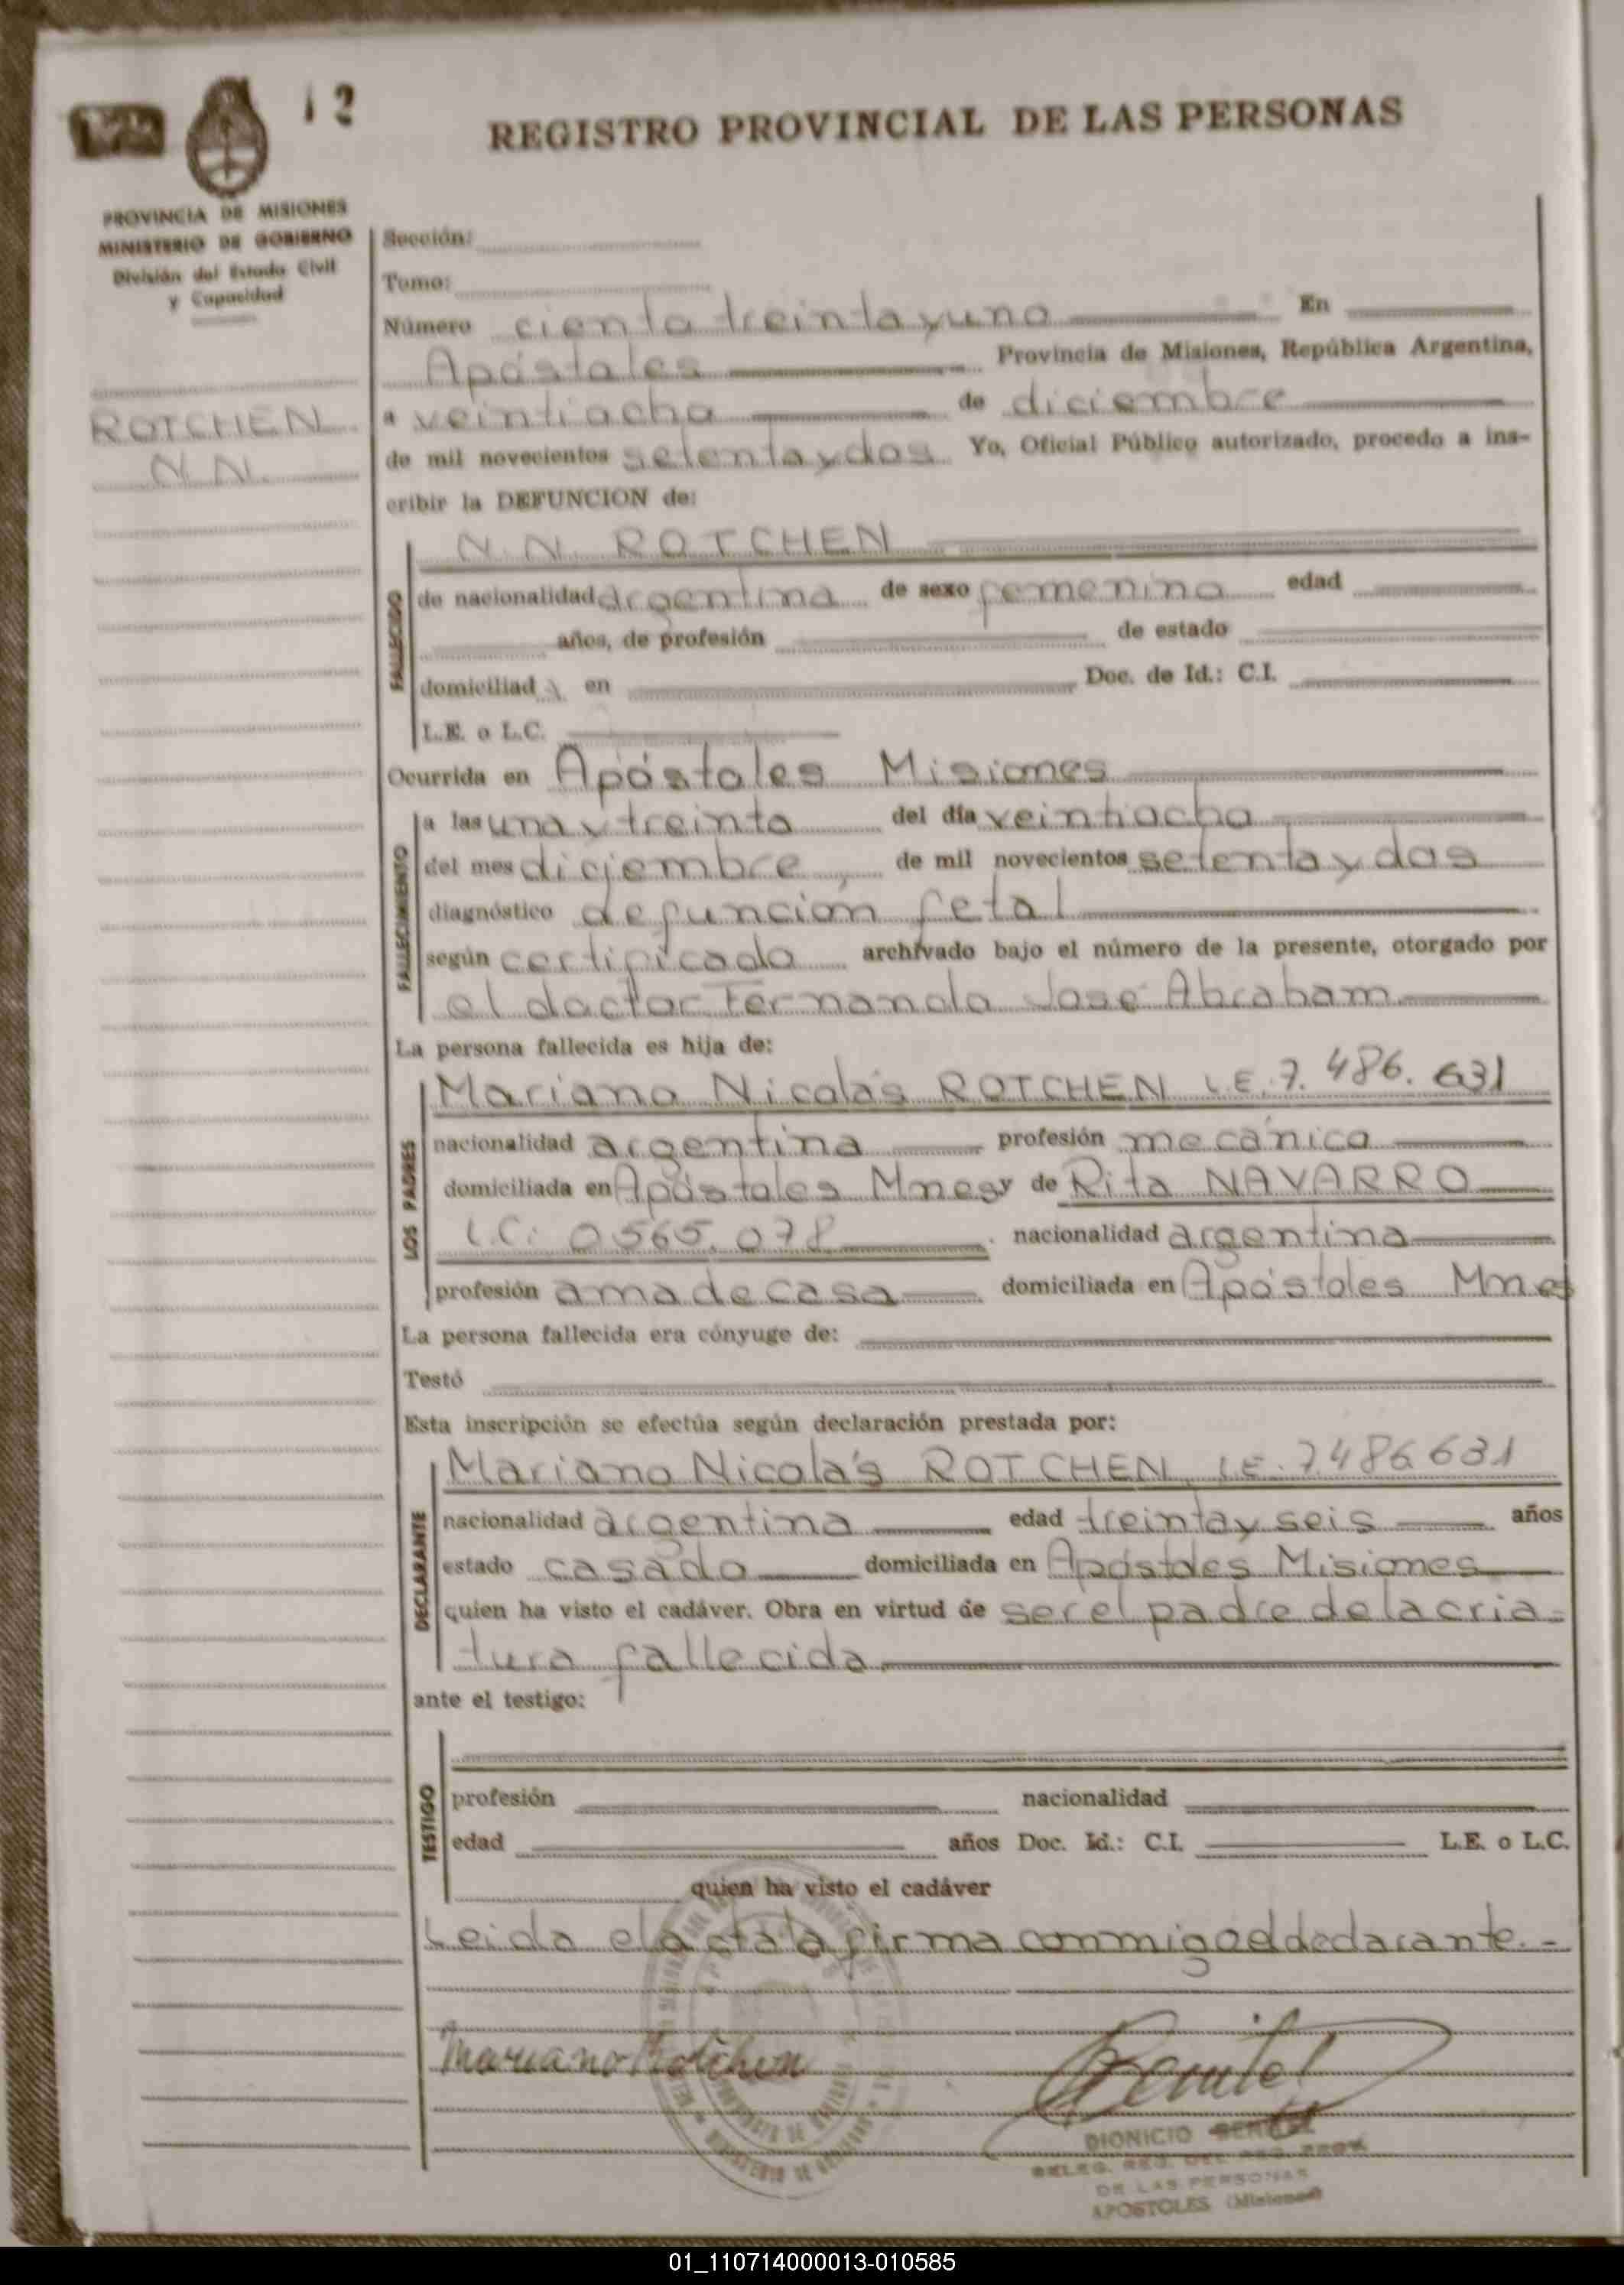 12
REGISTRO PROVINCIAL DE LAS PERSONAS
PROVINCIA DE MISIONES
MINISTERIO DE GOBIERNO
División del Estado Civil
y Capacidad
ROTCHEN
N.N.
Sección:
Tomo:
Número ciento treinta y uno En
Apóstoles Provincia de Misiones, República Argentina,
a veintiocho de diciembre
de mil novecientos setenta y dos Yo, Oficial Público autorizado, procedo a ins-
cribir la DEFUNCION de:
N.N. ROTCHEN
FALLECIDO
de nacionalidad argentina de sexo femenino edad
años, de profesión de estado
domiciliad en Doc. de Id.: C.I.
L.E. o L.C.
Ocurrida en Apóstoles Misiones
FALLECIMIENTO
a las una y treinta del día veintiocho
del mes diciembre de mil novecientos setenta y dos
diagnóstico defunción fetal
según certificado archivado bajo el número de la presente, otorgado por
el doctor Fernando José Abraham
La persona fallecida es hija de:
LOS PADRES
Mariano Nicolás ROTCHEN L.E. 7.486.631
nacionalidad argentina profesión mecánico
domiciliada en Apóstoles Mnes y de Rita NAVARRO
L.C. 0565.078 nacionalidad argentina
profesión ama de casa domiciliada en Apóstoles Mnes
La persona fallecida era cónyuge de:
Testó
Esta inscripción se efectúa según declaración prestada por:
DECLARANTE
Mariano Nicolás ROTCHEN L.E. 7486631
nacionalidad argentina edad treinta y seis años
estado casado domiciliada en Apóstoles Misiones
quien ha visto el cadáver. Obra en virtud de ser el padre de la cria-
tura fallecida
ante el testigo:
TESTIGO
profesión nacionalidad
edad años Doc. Id.: C.I. L.E. o L.C.
quien ha visto el cadáver
Leida el acta la firma conmigo el declarante.-
Mariano Rotchen
DIONICIO
DELEG. REG. DEL REG. PROV.
DE LAS PERSONAS
APOSTOLES (Misiones)
01_110714000013-010585